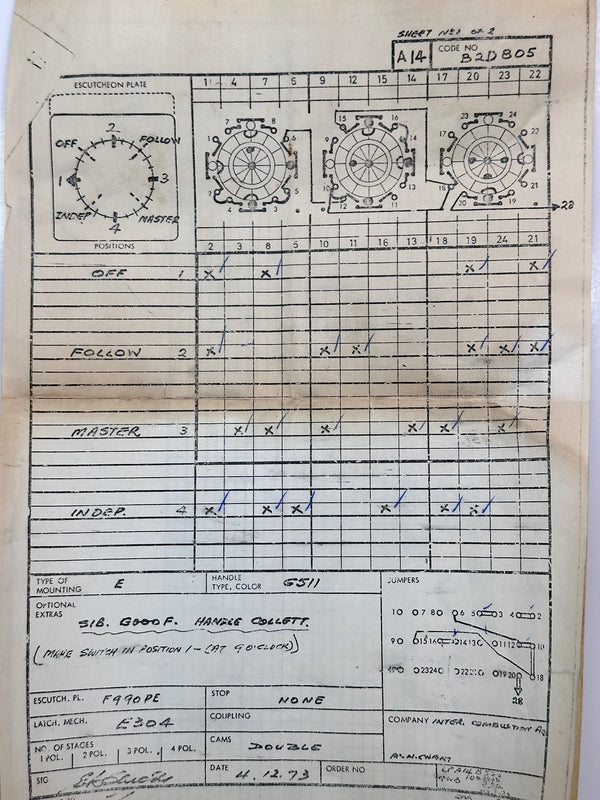 SHEET No 1 OF 2
A14 CODE NO B2D805
ESCUTCHEON PLATE
1 4 7 6 9 12 15 14 17 20 23 22
OFF 2 FOLLOW
1 3
INDEP 4 MASTER
7 8 6 1 2 5 4 3
15 16 14 9 10 13 12 11
23 24 22 17 18 21 20 19
28
POSITIONS
2 3 8 5 10 11 16 13 18 19 24 21
OFF 1 x x x x
FOLLOW 2 x x x x x x
MASTER 3 x x x x x x
INDEP. 4 x x x x x x
TYPE OF MOUNTING E
HANDLE TYPE, COLOR G511
JUMPERS
OPTIONAL EXTRAS
SIB. G000F. HANDLE COLLETT.
(MAKE SWITCH IN POSITION 1 - (AT 9 O'CLOCK))
1 0 0 7 8 0 0 6 5 3 4 2
9 0 0 15 16 0 0 14 13 0 0 11 12 10
0 23 24 0 0 22 21 0 0 19 20 0 18
28
ESCUTCH. PL. F990PE
STOP NONE
LATCH. MECH. E304
COUPLING
COMPANY INTER. COMBUSTION
NO. OF STAGES
1 POL. 2 POL. 3 POL. 4 POL.
CAMS DOUBLE
SIG
DATE 4.12.73
ORDER NO